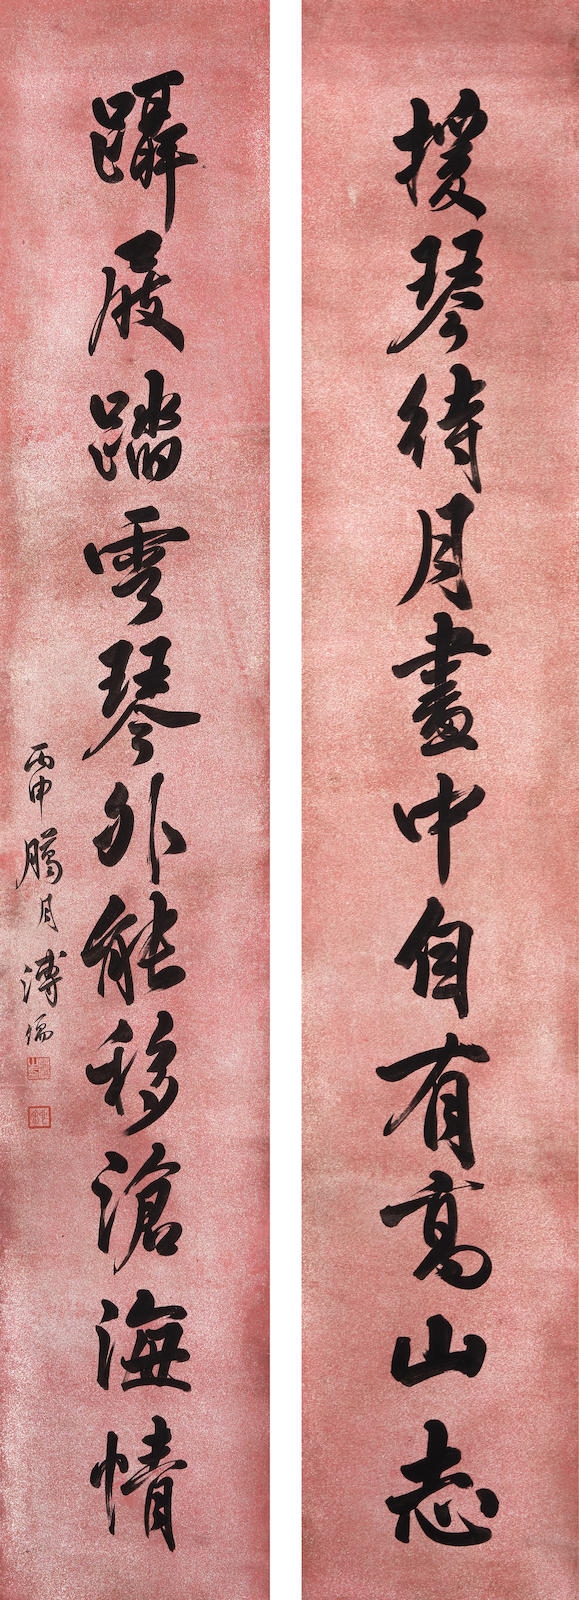 援琴待月畫中自有高山志
躡屐踏雲琴外能移滄海情
丙申臈月溥儒